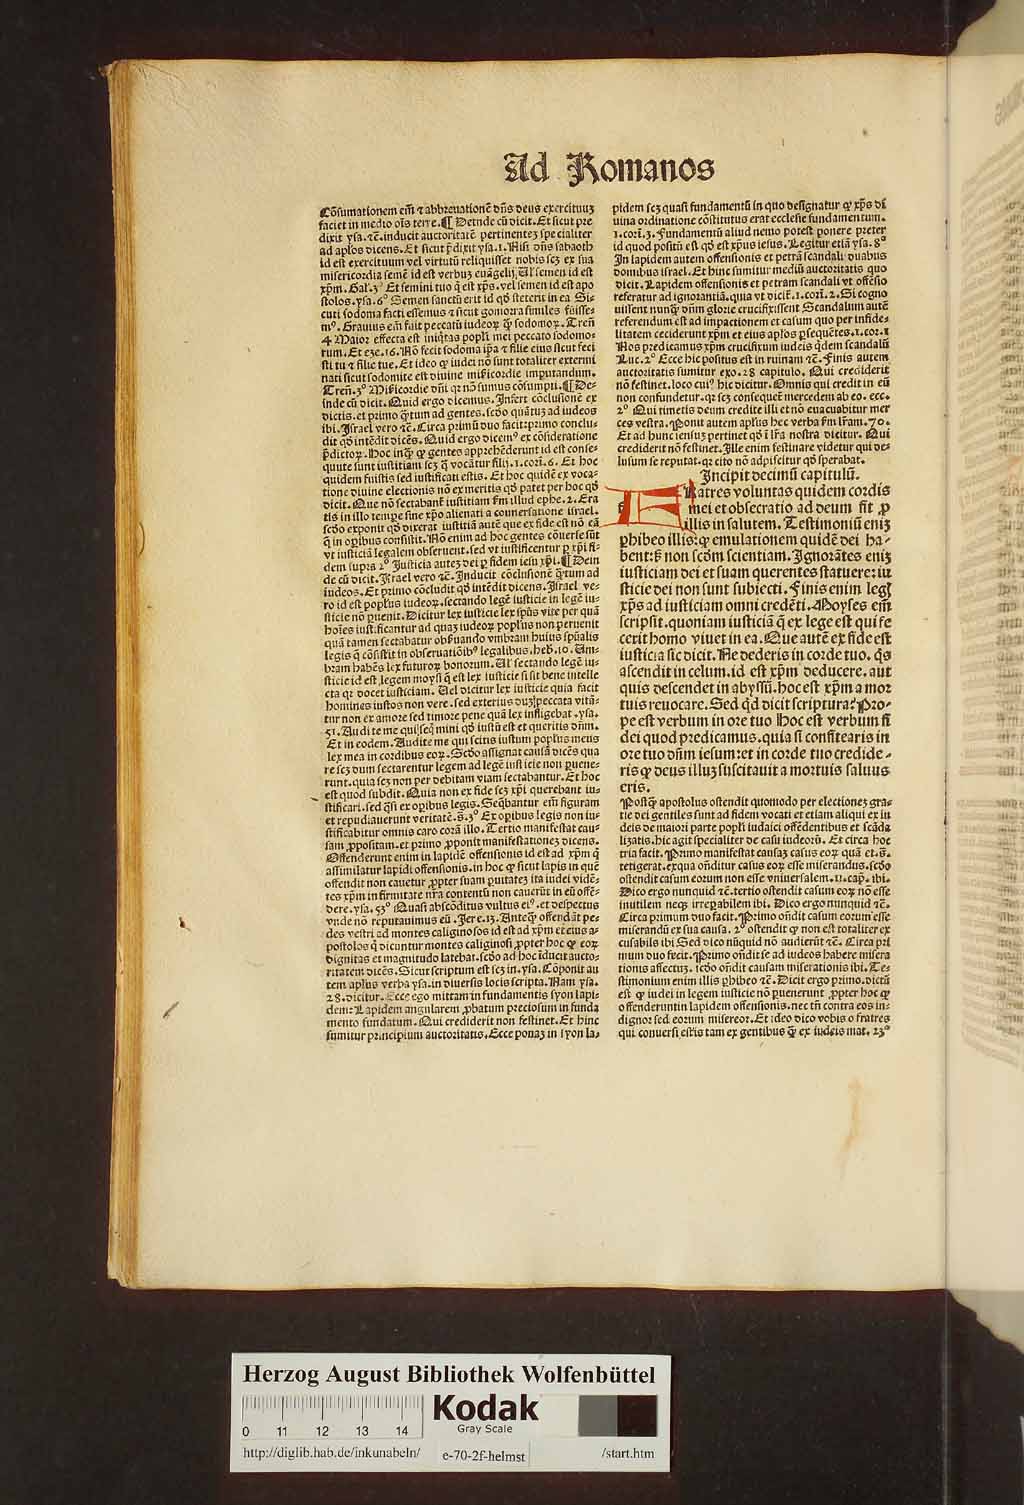 Ad Romanos
Cōsumationem em̄ ⁊ abbreuationē dn̄s deus exercituuꝫ
faciet in medio oīs terre.¶ Deinde cū dicit. Et sicut pre
dixit ysa. ⁊c̄. inducit auctoritatē pertinenteꝫ specialiter
ad aplōs dicens. Et sicut p̄dixit ysa.1. Nisi dn̄s sabaoth
id est exercituum vel virtutū reliquisset nobis scꝫ ex sua
misericordia semē id est verbuꝫ euāgelij. Ul̓ semen id est
xp̄m. Gal.3° Et semini tuo q̄ est xp̄s. vel semen id est apo
stolos. ysa.6° Semen sanctū erit id qd̓ steterit in ea. Si-
cuti sodoma facti essemus ⁊ sicut gomorra similes fuisse-
mꝰ. Grauius em̄ fait peccatū iudeoꝝ q̄ꝫ sodomoꝝ. Tren̄
4 Maior effecta est iniq̄tas popl̓i mei peccato sodomo-
rum. Et eze.16. Nō fecit sodoma ip̄a ⁊ filie eius sicut feci
sti tu ⁊ filie tue. Et ideo ꝙ iudei nō sunt totaliter extermi
nati sicut sodomite est diuine mīcordie imputandum.
Tren̄.3° Mīcordie dn̄i qꝛ nō sumus cōsumpti.¶ De-
inde cū dicit. Quid ergo dicemus. Infert cōclusionē ex
dictis. et primo q̄ꝫtum ad gentes. scd̓o quātuꝫ ad iudeos
ibi. Israel vero ⁊c̄. Circa primū duo facit: primo conclu-
dit qd̓ intēdit dicēs. Quid ergo dicemꝰ ex cōsideratione
p̄dictoꝝ. Hoc inq̄ꝫ ꝙ gentes apprehēderunt id est conse-
quute sunt iustitiam scꝫ q̄ vocātur filij.1.cori̅.6. Et hoc
quidem fuistis sed iustificati estis. Et hoc quidē ex voca-
tione diuine electionis nō ex meritis qd̓ patet per hoc qd̓
dicit. Que nō sectabant̄ iustitiam ẜm illud ephe.2. Era
tis in illo tempe sine xp̄o alienati a conuersatione israel.
scd̓o exponit qd̓ dixerat iustitiā autē que ex fide est nō eā
q̄ in opibus consistit. Nō enim ad hoc gentes cōuerse sūt
vt iusticiā legalem obseruent. sed vt iustificentur ꝑ xp̄i fi-
dem supra 2° Iusticia auteꝫ dei ꝑ fidem iesu xp̄i.¶ Dein
de cū dicit. Israel vero ⁊c̄. Inducit cōclusionē q̄ꝫtum ad
iudeos. Et primo cōcludit qd̓ intēdit dicens. Israel ve-
ro id est popl̓us iudeoꝝ. sectando legē iusticie in legē iu-
sticie nō ꝑuenit. Dicitur lex iusticie lex spūs vite per quā
hoīes iustificantur ad quaꝫ iudeoꝝ popl̓us non peruenit
quā tamen sectabatur obẜuando vmbram huius spūalis
legis q̄ cōsistit in obseruatiōibꝰ legalibus. heb̓.10. Um-
bram habēs lex futuroꝝ bonorum. Ul̓ sectando legē iu-
sticie id est legem moysi q̄ est lex iusticie si sit bene intelle
cta qꝛ docet iusticiam. Uel dicitur lex iusticie quia facit
homines iustos non vere. sed exterius duꝫ peccata vitā-
tur non ex amore sed timore pene quā lex infligebat. ysa.
51. Audite me qui seq̄mini qd̓ iustū est et queritis dn̄m.
Ex in eodem. Audite me qui scitis iustum popl̓us meus
lex mea in cordibus eoꝝ. Scd̓o assignat causā dicēs qua
re scꝫ dum sectarentur legem ad legē iusticie non ꝑuene-
runt. quia scꝫ non per debitam viam sectabantur. Et hoc
est quod subdit. Quia non ex fide scꝫ xp̄i querebant iu-
stificari. sed q̄si ex opibus legis. Seq̄bantur em̄ figuram
et repudiauerunt veritatē. s̄.3° Ex opibus legis non iu-
stificabitur omnis caro corā illo. Tertio manifestat cau-
sam ꝓpositam. et primo ꝓponit manifestationeꝫ dicens.
Offenderunt enim in lapidē offensionis id est ad xp̄m q̄
assimilatur lapidi offensionis. in hoc ꝙ sicut lapis in quē
offendit non cauetur ꝓpter suam ꝑuitateꝫ ita iudei vidē-
tes xp̄m in firmitate nr̄a contentū non cauerūt in eū offē-
dere. ysa.53° Quasi abscōditus vultus eiꝰ. et despectus
vnde nō reputauimus eū. Iere.13. Anteq̄ꝫ offendāt pe-
des vestri ad montes caliginosos id est ad xp̄m et eius a-
postolos q̄ dicuntur montes caliginosi ꝓpter hoc ꝙ eoꝝ
dignitas et magnitudo latebat. scd̓o ad hoc īducit aucto-
ritatem dicēs. Sicut scriptum est scꝫ in. ysa. Cōponit au
tem aplus verba ysa. in diuersis locis scripta. Nam ysa.
28. dicitur. Ecce ego mittam in fundamentis syon lapi-
dem: Lapidem angularem ꝓbatum preciosum in funda
mento fundatum. Qui crediderit non festinet. Et hinc
sumitur principium auctoritatis. Ecce ponaꝫ in syon la-
pidem scꝫ quasi fundamentū in quo designatur ꝙ xp̄s di
uina ordinatione cōstitutus erat ecclesie fundamentum.
1.cori̅.3. Fundamentū aliud nemo potest ponere preter
id quod positū est qd̓ est xp̄us iesus. Legitur etiā ysa.8°
In lapidem autem offensionis et petrā scandali duabus
domibus israel. Et hinc sumitur mediū auctoritatis quo
dicit. Lapidem offensionis et petram scandali vt offēsio
referatur ad ignorantiā. quia vt dicit̄.1.cori̅.2. Si cogno
uissent nunq̄ꝫ dn̄m glorie crucifixissent Scandalum autē
referendum est ad impactionem et casum quo per infide-
litatem ceciderunt xp̄m et eius aplōs ꝑsequētes.1.cor.1
Nos predicamus xp̄m crucifixum iudeis q̄dem scandalū
Luc.2° Ecce hic positus est in ruinam ⁊c̄. Finis autem
auctoritatis sumitur exo.28 capitulo. Qui crediderit
nō festinet. loco cuiꝰ hic dicitur. Omnis qui credit in eū
non confundetur. qꝛ scꝫ consequet̄ mercedem ab eo. ecc.
2° Qui timetis deum credite illi et nō euacuabitur mer
ces vestra. Ponit autem aplus hec verba ẜm lr̄am.70.
Et ad hunc sensuꝫ pertinet qd̓ ī lr̄a nostra dicitur. Qui
crediderit nō festinet. Ille enim festinare videtur qui de-
lusum se reputat. qꝛ cito nō adpiscitur qd̓ sperabat.
Incipit decimū capitulū.
FRatres voluntas quidem cordis
mei et obsecratio ad deum fit ꝓ
illis in salutem. Testimoniū eniꝫ
ꝑhibeo illis: ꝙ emulationem quidē dei ha-
bent: ẜ non scd̓m scientiam. Ignorātes eniꝫ
iusticiam dei et suam querentes statuere: iu
sticie dei non sunt subiecti. Finis enim legꝭ
xp̄s ad iusticiam omni credēti. Moyses em̄
scripsit. quoniam iusticiā q̄ ex lege est qui fe
cerit homo viuet in ea. Que autē ex fide est
iusticia sic dicit. Ne dederis in corde tuo. q̄s
ascendit in celum. id est xp̄m deducere. aut
quis descendet in abyssū. hoc est xp̄m a mor
tuis reuocare. Sed qd̓ dicit scriptura? Pro-
pe est verbum in ore tuo Hoc est verbum fi
dei quod predicamus. quia si confitearis in
ore tuo dn̄m iesum: et in corde tuo credide-
ris ꝙ deus illuꝫ suscitauit a mortuis saluus
eris.
Postq̄ꝫ apostolus ostendit quomodo per electioneꝫ gra-
tie dei gentiles sunt ad fidem vocati et etiam aliqui ex iu
deis de maiori parte popl̓i iudaici offēdentibus et scāda
lizatis. hic agit specialiter de casu iudeorū. Et circa hoc
tria facit. Primo manifestat causaꝫ casus eoꝝ quā et. s̄.
tetigerat. ex qua on̄ditur casus eoꝝ esse miserandus. scd̓o
ostendit casum eorum non esse vniuersalem.11.cap̄. ibi.
Dico ergo nunquid ⁊c̄. tertio ostendit casum eoꝝ nō esse
inutilem neqꝫ irrepabilem ibi. Dico ergo nunquid ⁊c̄.
Circa primum duo facit. Primo on̄dit casum eorum esse
miserandū ex sua causa. 2° ostendit ꝙ non est totaliter ex
cusabils ibi Sed dico nūquid nō audierūt ⁊c̄. Circa pri
mum duo fecit. Primo on̄dit se ad iudeos habere misera
tionis affectuꝫ. scd̓o on̄dit causam miserationis ibi. Te-
stimonium enim illis ꝑhibeo ⁊c̄. Dicit ergo primo. dictū
est ꝙ iudei in legem iusticie nō ꝑuenerunt ꝓpter hoc ꝙ
offenderunt in lapidem offensionis. nec tn̄ contra eos in-
dignor sed eorum misereor. Et ideo dico vobis o fratres
qui conuersi estis tam ex gentibus q̄ꝫ ex iudeis mat.23°
Herzog August Bibliothek Wolfenbüttel
0 11 12 13 14
Kodak
Gray Scale
http://diglib.hab.de/inkunabeln/
e-70-2f-helmst
/start.htm